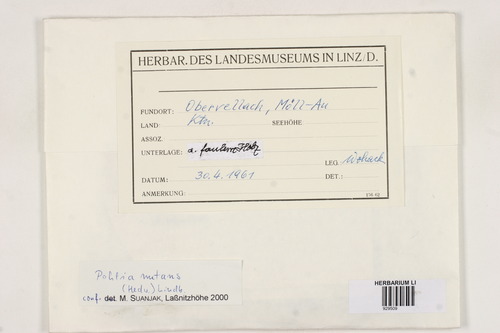 HERBAR. DES LANDESMUSEUMS IN LINZ/D.
FUNDORT: Obervellach, Möll-Au
LAND: Ktn. SEEHÖHE
ASSOZ.
UNTERLAGE: a. faulem Holz
LEG.
DATUM: 30.4.1961 DET.:
ANMERKUNG:
Pohlia nutans
(Hedw.) Lindb.
conf. det. M. SUANJAK, Laßnitzhöhe 2000
HERBARIUM LI